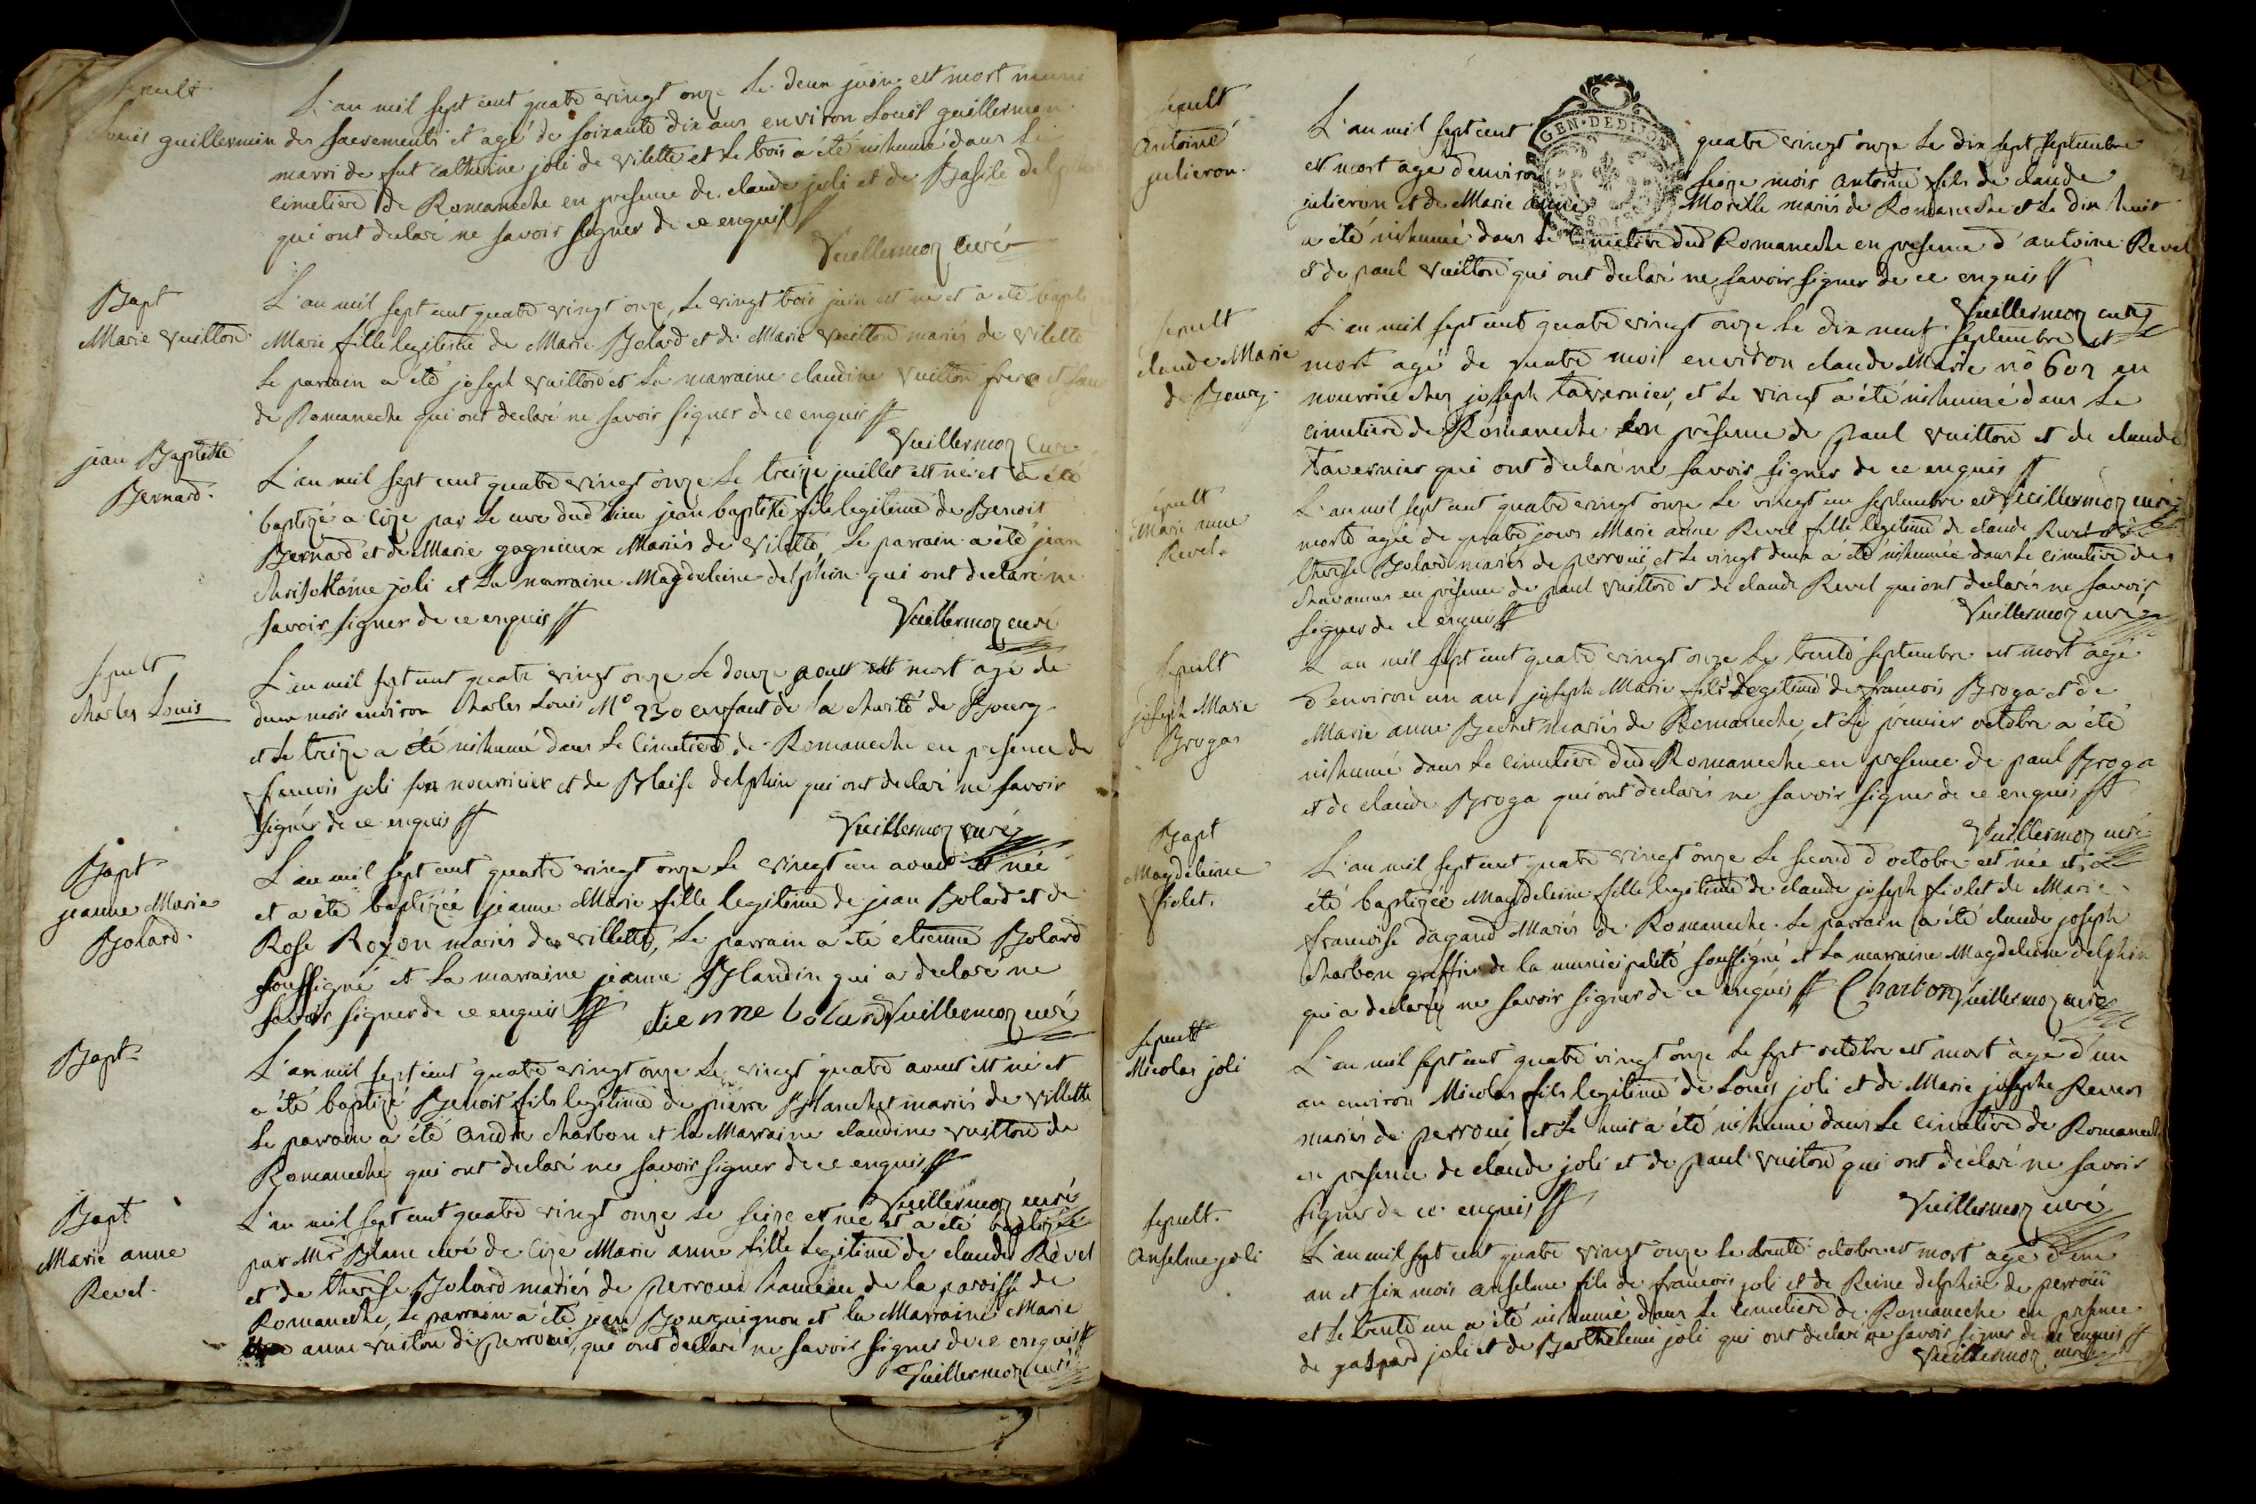 Sepult
Louis guillermin
L'an mil sept cent quatre vingt onze Le deux juin est mort muni
des sacrements et agé de soixante dix ans environ Louis guillermin
marri de fut catherine joli de vilette et le trois a été inhumé dans le
cimetiere de Romaneche en presence de claude joli et de Basile delphin
qui ont declaré ne savoir signer de ce enquis
Vuillermoz curé
Bapt
Marie vuitton
L'an mil sept cent quatre vingt onze, Le vingt trois juin est né et a été bapt
Marie fille legitime de Marie Bolard et de Marie vuitton mariés de vilette
Le parrain a été joseph vuitton et La marraine claudine vuitton frere et
de Romaneche qui ont declaré ne savoir signer de ce enquis
Vuillermoz Curé
jean Baptiste
Bernard.
L'an mil sept cent quatre vingt onze Le treize juillet est né et a été
baptizé a Cize par le curé dud lieu jean baptiste fils legitime de Benoit
Bernard et de Marie gagnieux Mariés de vilette, Le parrain a été jean
joli et La marraine Magdeleine delphin qui ont declaré ne
savoir signer de ce enquis
Vuillermoz curé
Sepult
Charles Louis
L'an mil sept cent quatre vingt onze Le douze aout est mort agé de
deux mois environ Charles Louis N° 230 enfant de la charité de Bourg
et Le treize a été inhumé dans Le Cimetiere de Romaneche en presence de
francois joli son nourricier et de Blaise delphin qui ont declaré ne savoir
signér de ce enquis
Vuillermoz curé
Bapt
jeanne Marie
Bolard.
L'an mil sept cent quatre vingt onze Le vingt un aout est née
et a été baptizéé jeanne Marie fille legitime de jean Bolard et de
Rose Royon mariés de villette, Le parrain a été etienne Bolard
soussigné et La marraine jeanne Blandin qui a declaré ne
savoir signer de ce enquis etienne bolard Vuillermoz curé
Bapt
L'an mil sept cent quatre vingt onze Le vingt quatre aout est né et
a été baptizé Benoit fils legitime de pierre Blanchet mariés de villette
Le parrain a été andré charbon et la Marraine claudine vuitton de
Romaneche qui ont declaré ne savoir signer de ce enquis
Vuillermoz curé
Bapt
Marie anne
Revel.
L'an mil sept cent quatre vingt onze Le seize est née et a été baptizée
par Mr Blanc curé de Cize Marie anne fille Legitime de claude Revel
et de therese Bolard mariés de perroui hameau de la paroisse de
Romaneche, Le parrain a été jean Bourguignon et la Marraine Marie
anne vuiton de perroui, qui ont declaré ne savoir signer de ce enquis
Vuillermoz curé
Sepult
Antoine
julieron.
L'an mil sept cent quatre vingt onze Le dix sept septembre
GEN. DE DIJON
est mort agé d'environ seize mois antoine fils de claude
julieron et de Marie anne Morelle mariés de Romaneche et Le dix huit
a été inhumé dans Le Cimetiere dud Romaneche en presence d'antoine Revel
et de paul vuitton qui ont declaré ne savoir signer de ce enquis
Vuillermoz curé
Sepult
claude Marie
de Bourg.
L'an mil sept cent quatre vingt onze Le dix neuf septembre est
mort agé de quatre mois environ claude Marie n° 602 en
nourrice chez joseph tavernier, et Le vingt a été inhumé dans Le
cimetiere de Romaneche en présence de paul vuitton et de claude
tavernier qui ont declaré ne savoir signer de ce enquis
Vuillermoz curé
Sepult
Marie anne
Revel.
L'an mil sept cent quatre vingt onze Le vingt un septembre est
morte agée de quatre jours Marie anne Revel fille legitime de claude Revel et de
therese Bolard mariés de perroüi, et Le vingt deux a été inhumée dans Le cimetiere de
en présence de paul vuitton et de claude Revel qui ont declarés ne savoir
signer de ce enquis
Vuillermoz curé
Sepult
joseph Marie
Broga
L'an mil sept cent quatre vingt onze Le trente septembre est mort agé
d'environ un an joseph Marie fils Legitime de francois Broga et de
Marie anne Bechet mariés de Romaneche, et Le premier octobre a été
inhumé dans Le cimetiere dud Romaneche en presence de paul Broga
et de claude Broga qui ont declarés ne savoir signer de ce enquis
Vuillermoz curé
Bapt
Magdeleine
fiolet.
L'an mil sept cent quatre vingt onze Le second d'octobre est née et a
été baptizée Magdeleine fille legitime de claude joseph fiolet de Marie
francoise dagand Mariés de Romaneche. Le parrain a été claude joseph
charbon greffier de la municipalité soussigné et La marraine Magdeleine delphin
qui a declaré ne savoir signer de ce enquis Charbon Vuillermoz curé
Sepult
Nicolas joli
L'an mil sept cent quatre vingt onze Le sept octobre est mort agé d'un
an environ Nicolas fils legitime de Louis joli et de Marie josephe Revers
mariés de perroui, et Le huit a été inhumé dans Le cimetiere de Romaneche
en presence de claude joli et de paul vuiton qui ont declaré ne savoir
signer de ce enquis
Vuillermoz curé
Sepult.
Anselme joli
L'an mil sept cent quatre vingt onze Le trente octobre est mort agé d'un
an et six mois anselme fils de francois joli et de Reine delphin de perroüi
et Le trente un a été inhumé dans Le cimetiere de Romaneche en presence
de gaspard joli et de Barthelemi joli qui ont declaré ne savoir signer de ce enquis
Vuillermoz curé